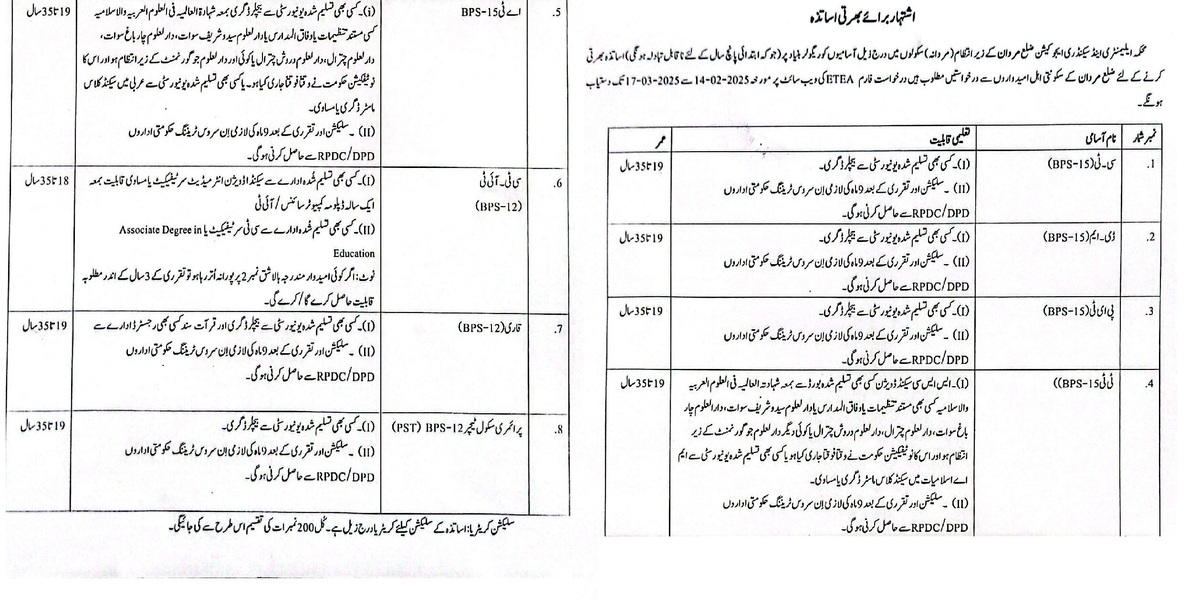 اشتہار برائے بھرتی اساتذہ
محکمہ ایلیمنٹری اینڈ سیکنڈری ایجوکیشن ضلع مردان کے زیر انتظام (مردانہ) سکولوں میں درج ذیل آسامیوں کو ریگولر بنیاد پر (جو کہ ابتدائی پانچ سال کے لئے ناقابل تبادلہ ہونگی) اساتذہ بھرتی
کرنے کے لئے ضلع مردان کے سکونتی اہل امیدواروں سے درخواستیں مطلوب ہیں درخواست فارم ETEA کی ویب سائٹ پر مورخہ 2025-02-14 سے 2025-03-17 تک دستیاب
ہونگے۔
نمبر شمار نام آسامی تعلیمی قابلیت عمر
1. سی۔ٹی (BPS-15) (I)۔ کسی بھی تسلیم شدہ یونیورسٹی سے بیچلر ڈگری۔ 19 تا 35 سال
(II) ۔ سلیکشن اور تقرری کے بعد 9 ماہ کی لازمی اِن سروس ٹریننگ حکومتی اداروں
RPDC/DPD سے حاصل کرنی ہوگی۔
2. ڈی۔ایم (BPS-15) (I)۔ کسی بھی تسلیم شدہ یونیورسٹی سے بیچلر ڈگری۔ 19 تا 35 سال
(II) ۔ سلیکشن اور تقرری کے بعد 9 ماہ کی لازمی اِن سروس ٹریننگ حکومتی اداروں
RPDC/DPD سے حاصل کرنی ہوگی۔
3. پی ای ٹی (BPS-15) (I)۔ کسی بھی تسلیم شدہ یونیورسٹی سے بیچلر ڈگری۔ 19 تا 35 سال
(II) ۔ سلیکشن اور تقرری کے بعد 9 ماہ کی لازمی اِن سروس ٹریننگ حکومتی اداروں
RPDC/DPD سے حاصل کرنی ہوگی۔
4. ٹی ٹی (BPS-15)) (I)۔ ایس ایس سی سیکنڈ ڈویژن کسی بھی تسلیم شدہ بورڈ سے بمعہ شہادۃ العالیہ فی العلوم العربیہ 19 تا 35 سال
والاسلامیہ کسی بھی مستند تنظیمات یا وفاق المدارس یا دارلعلوم سیدو شریف سوات، دارالعلوم چار
باغ سوات، دارلعلوم چترال، دارلعلوم دروش چترال یا کوئی دیگر دارلعلوم جو گورنمنٹ کے زیر
انتظام ہو اور اس کا نوٹیفیکیشن حکومت نے وقتاً فوقتاً جاری کیا ہو یا کسی بھی تسلیم شدہ یونیورسٹی سے ایم
اے اسلامیات میں سیکنڈ کلاس ماسٹر ڈگری یا مساوی۔
(II) ۔ سلیکشن اور تقرری کے بعد 9 ماہ کی لازمی اِن سروس ٹریننگ حکومتی اداروں
RPDC/DPD سے حاصل کرنی ہوگی۔
5. اے ٹی BPS-15 (i)۔ کسی بھی تسلیم شدہ یونیورسٹی سے بیچلر ڈگری بمعہ شہادۃ العالیہ فی العلوم العربیہ والاسلامیہ 19 تا 35 سال
کسی مستند تنظیمات یا وفاق المدارس یا دارلعلوم سیدو شریف سوات، دارلعلوم چار باغ سوات،
دارلعلوم چترال، دارلعلوم دروش چترال یا کوئی اور دارلعلوم جو گورنمنٹ کے زیر انتظام ہو اور اس کا
نوٹیفکیشن حکومت نے وقتاً فوقتاً جاری کیا ہو۔ یا کسی بھی تسلیم شدہ یونیورسٹی سے عربی میں سیکنڈ کلاس
ماسٹر ڈگری یا مساوی۔
(II) ۔ سلیکشن اور تقرری کے بعد 9 ماہ کی لازمی اِن سروس ٹریننگ حکومتی اداروں
RPDC/DPD سے حاصل کرنی ہوگی۔
6. سی ٹی۔آئی ٹی (I)۔ کسی بھی تسلیم شُدہ ادارے سے سیکنڈ ڈویژن انٹر میڈیٹ سرٹیفیکیٹ یا مساوی قابلیت بمعہ 18 تا 35 سال
(BPS-12) ایک سالہ ڈپلومہ کمپیوٹر سائنس/آئی ٹی
(II)۔ کسی بھی تسلیم شُدہ ادارے سے سی ٹی سرٹیفیکیٹ یا Associate Degree in
Education
نوٹ: اگر کوئی امیدوار مندرجہ بالا شق نمبر 2 پر پورا نہ اُتر رہا ہو تو تقرری کے 3 سال کے اندر مطلوبہ
قابلیت حاصل کرے گا/کرے گی۔
7. قاری (BPS-12) (I)۔ کسی بھی تسلیم شدہ یونیورسٹی سے بیچلر ڈگری اور قرآت سند کسی بھی رجسٹرڈ ادارے سے 19 تا 35 سال
(II) ۔ سلیکشن اور تقرری کے بعد 9 ماہ کی لازمی اِن سروس ٹریننگ حکومتی اداروں
RPDC/DPD سے حاصل کرنی ہوگی۔
8. پرائمری سکول ٹیچر BPS-12 (PST) (I)۔ کسی بھی تسلیم شدہ یونیورسٹی سے بیچلر ڈگری۔ 19 تا 35 سال
(II) ۔ سلیکشن اور تقرری کے بعد 9 ماہ کی لازمی اِن سروس ٹریننگ حکومتی اداروں
RPDC/DPD سے حاصل کرنی ہوگی۔
سلیکشن کریٹریا: اساتذہ کے سلیکشن کیلئے کریٹریا درج زیل ہے۔ کُل 200 نمبرات کی تقسیم اس طرح سے کی جائیگی۔